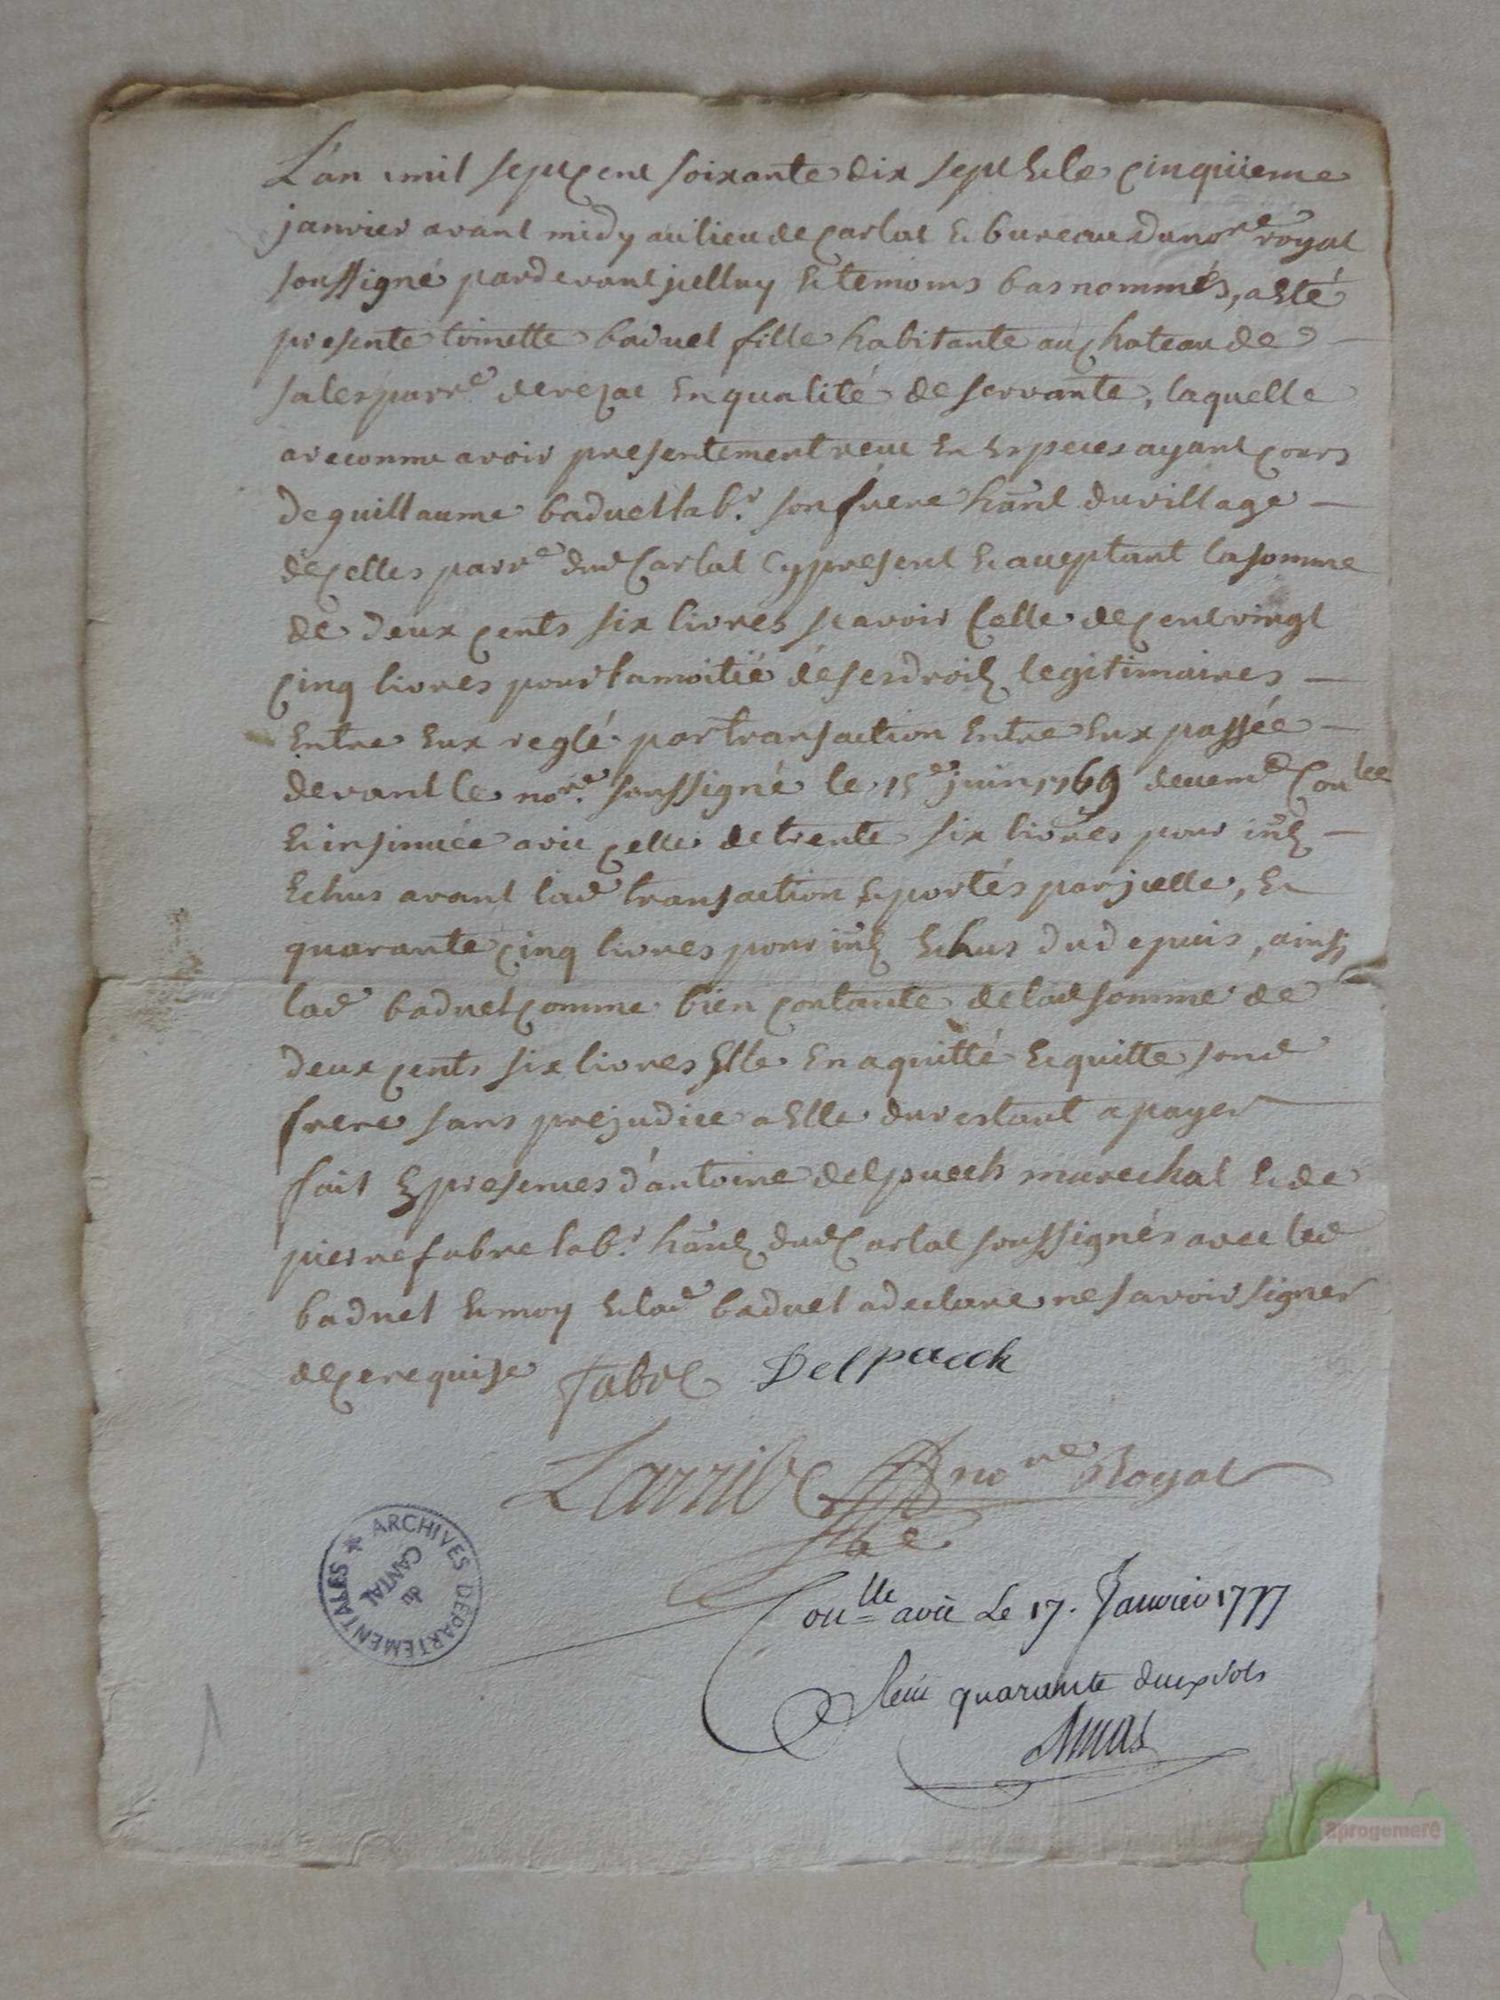 L'an mil sept cent soixante dix sept & le cinquieme
janvier avant midy au lieu de Carlat & bureau du no.re royal
soussigné pardevant jcelluy & temoins bas nommés, a esté
presente toinette baduel fille habitante au chateau de
sales parr.e de vezac en qualité de servante, laquelle
a reconnu avoir presentement receu en especes ayant cours
de guillaume baduel lab.r son frere hant du village
de celles parr.e dud Carlat cy present & acceptant la somme
de deux cents six livres scavoir celle de cent vingt
cinq livres pour la moitié de ses droits legitimaires
entre eux reglé par transaction entre eux passée
devant le no.re soussigné le 15e juin 1769 deuem.t Con.lée
& insinuée avec celle de trente six livres pour int
echus avant lad transaction & portés par jcelle, &
quarante cinq livres pour int echus du depuis, ainsi
lad baduel comme bien contante de lad somme de
deux cents six livres elle en a quitté & quitte sond
frere sans prejudice a elle du restant a payer
fait en presences d'antoine delpuech marechal & de
pierre fabre lab.r hants dud Carlat soussignés avec led
baduel & moy & lad baduel a declaré ne savoir signer
de ce requise Fabre Delpuech
Larribe no.re Royal
Con.lle avec Le 17. Janvier 1777
Reçu quarante deux sols
ARCHIVES DÉPARTEMENTALES
du
CANTAL
1
aprogemere